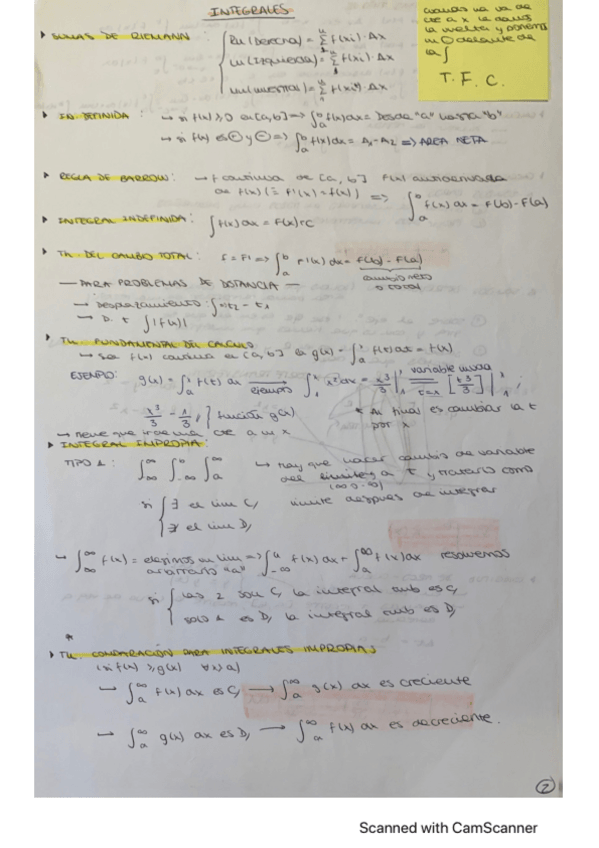 INTEGRALES
cuando va de
cte a x le damos
la vuelta y ponemos
un ⊖ delante de
la ∫
T. F. C.
SUMAS DE RIEMANN
Rn (Derecha) = Σ f(xi) · Δx
Ln (Izquierda) = Σ f(xi) · Δx
Mn (muestral) = Σ f(xi*) · Δx
IN. DEFINIDA : → si f(x) ≥ 0 en [a,b] => ∫ₐᵇ f(x)dx = Desde "a" hasta "b"
→ si f(x) es ⊕ y ⊖ => ∫ₐᵇ f(x)dx = A₁ - A₂ => AREA NETA
REGLA DE BARROW : → f continua de [a, b] F(x) antiderivada
de f(x) (F'(x) = f(x)) => ∫ₐᵇ f(x) dx = F(b) - F(a)
INTEGRAL INDEFINIDA : ∫f(x) dx = F(x) + C
TH. DEL CAMBIO TOTAL : f = F' => ∫ₐᵇ F'(x) dx = F(b) - F(a)
cambio neto
o total
— PARA PROBLEMAS DE DISTANCIA —
→ Desplazamiento :
→ D. t ∫|f(x)|
TH. FUNDAMENTAL DEL CALCULO
→ sea f(x) continua en [a,b] la g(x) = ∫ₐˣ f(t) dt = f(x)
EJEMPLO: g(x) = ∫ₐˣ f(t) dt ejemplo ∫₁ˣ x² dx = x³/3 |₁ˣ variable muda t=x [t³/3]₁ˣ ;
x³/3 - 1/3 } función g(x) * Al final es cambiar la t
por x
→ tiene que ir de una cte a un x
INTEGRAL IMPROPIA :
TIPO 1 : ∫ ∫ ∫ → hay que hacer cambio de variable
del limite a t y tratarlo como
(∞ o -∞)
limite despues de integrar
si { ∃ el lim C,
∄ el lim D,
→ ∫ f(x) = elegimos un lim => ∫ f(x) dx + ∫ f(x) dx resolvemos
arbitrario "a"
si { las 2 son C, la integral amb es C,
solo 1 es D, la integral amb es D,
*
TH. COMPARACIÓN PARA INTEGRALES IMPROPIAS
(si f(x) ≥ g(x) ∀ x ≥ a)
→ ∫ₐ^∞ f(x) dx es C, → ∫ₐ^∞ g(x) dx es creciente
→ ∫ₐ^∞ g(x) dx es D, → ∫ₐ^∞ f(x) dx es decreciente.
2
Scanned with CamScanner